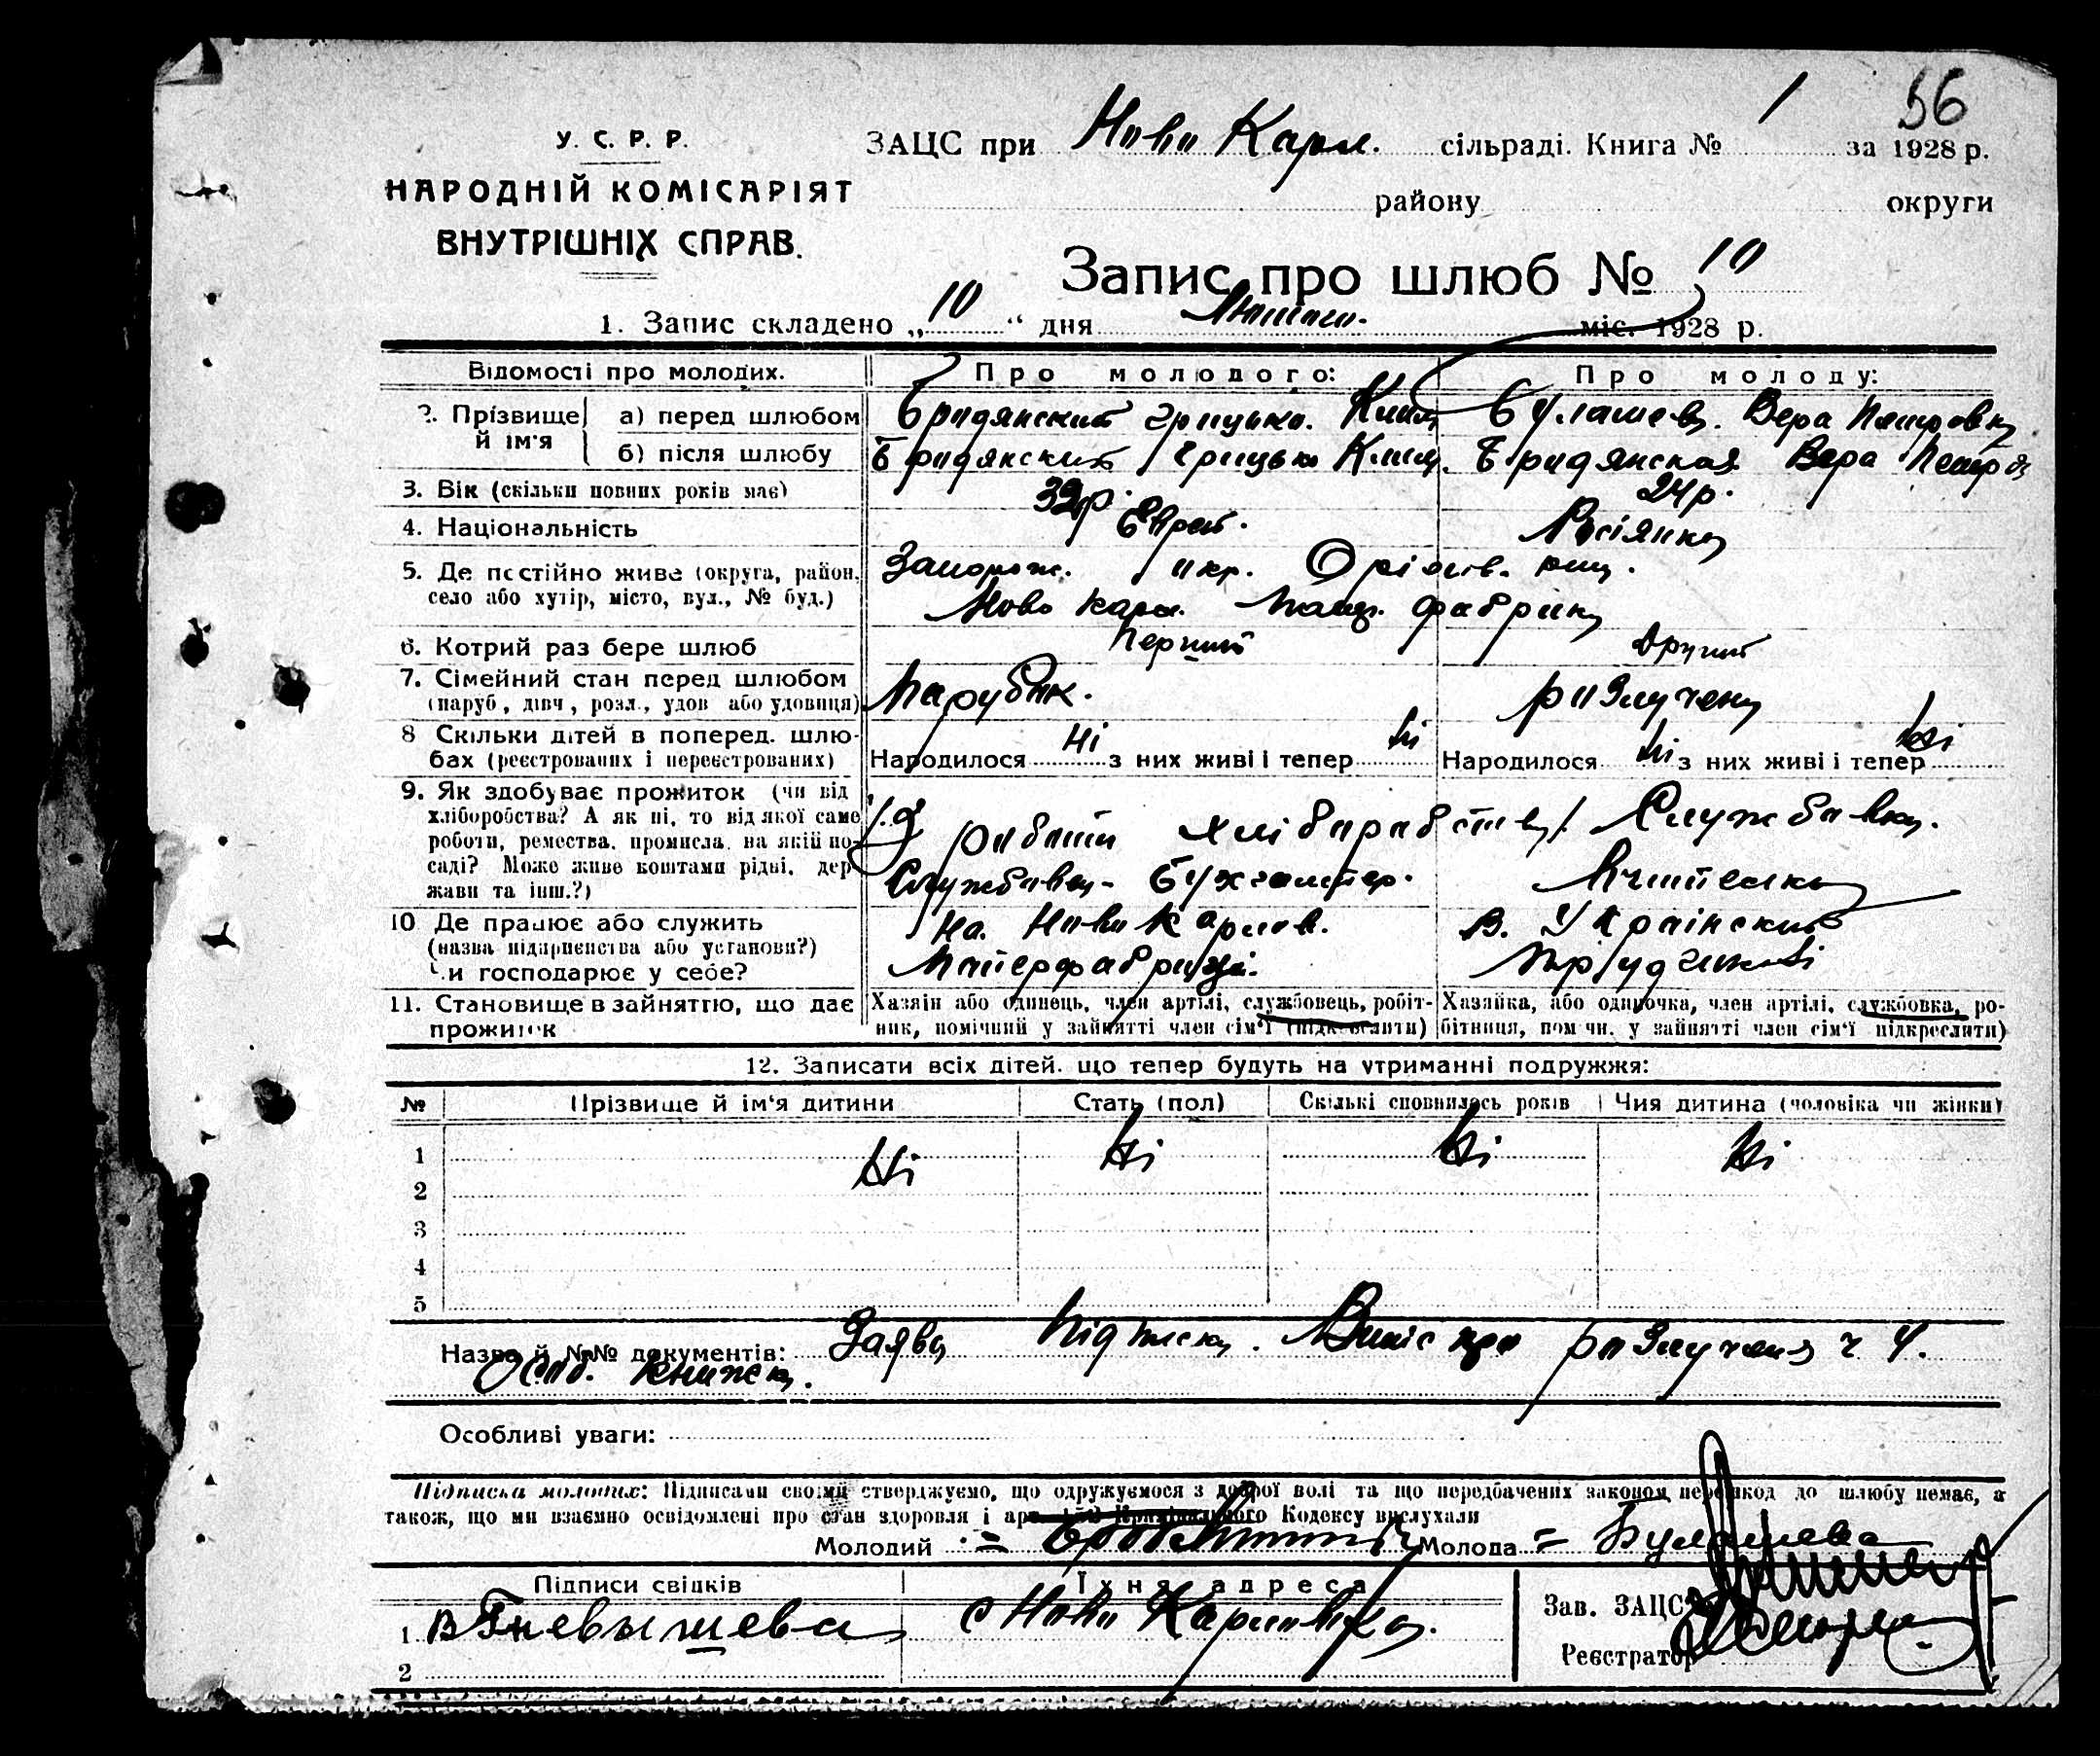 56
У. С. Р. Р.
НАРОДНІЙ КОМІСАРІЯТ
ВНУТРІШНІХ СПРАВ.
ЗАЦС при Ново Карл. сільраді. Книга № 1 за 1928 р.
району округи
Запис про шлюб № 10
1. Запис складено „10“ дня Лютого. міс. 1928 р.
Відомості про молодих. Про молодого: Про молоду:
2. Прізвище й ім'я а) перед шлюбом Бридянский Грицько. Клим Булашева. Вера Петровна
б) після шлюбу Бридянский Грицько Клим. Бридянская Вера Петров
3. Вік (скільки повних років має) 32р. 24р.
4. Національність Еврей. Росіянка
5. Де постійно живе (округа, район, Запорож. окр. Оріхів. рай.
село або хутір, місто, вул., № буд.) Ново Карл. Пап. фабрика
6. Котрий раз бере шлюб Перший Другий
7. Сімейний стан перед шлюбом Парубок. разлучена
(паруб, дівч, розл., удов або удовиця)
8 Скільки дітей в поперед. шлю-
бах (реєстрованих і нереєстрованих) Народилося Ні з них живі і тепер Ні Народилося Ні з них живі і тепер Ні
9. Як здобуває прожиток (чи від
хліборобства? А як ні, то від якої саме
роботи, ремества, промисла, на якій по-
саді? Може живе коштами рідні, дер-
жави та інш.?)
работи хліборабства Службовка.
Службовец- Бухгалтер. Вчителька
10 Де працює або служить На. Ново Карлов. В. Украінский
(назва підприємства або установи?) Папєрфабриці. Трудшколі
Чи господарює у себе?
11. Становище в зайняттю, що дає
прожиток
Хазяін або одинець, член артілі, службовець, робіт-
ник, помічний у зайнятті член сім'ї (підкреслити)
Хазяйка, або одиночка, член артілі, службовка, ро-
бітниця, пом чн. у зайнятті член сім'ї підкреслити)
12. Записати всіх дітей, що тепер будуть на утриманні подружжя:
№ Прізвище й ім'я дитини Стать (пол) Скількі сповнилось років Чия дитина (чоловіка чи жінки)
1 Ні Ні Ні Ні
2
3
4
5
Назва й №№ документів: Заява Підписка. Випіс про разлученя ч 4.
Особ. книжка.
Особливі уваги:
Підписка молодих: Підписами своїми стверджуємо, що одружуємося з доброї волі та що передбачених законом перешкод до шлюбу немає, а
також, що ми взаємно освідомлені про стан здоровля і арт. 153 Кримінального Кодексу вислухали
Молодий Молода Булашева
Підписи свідків Їхня адреса
1 В Гневышева с Ново Карловка. Зав. ЗАЦС
2 Реєстратор